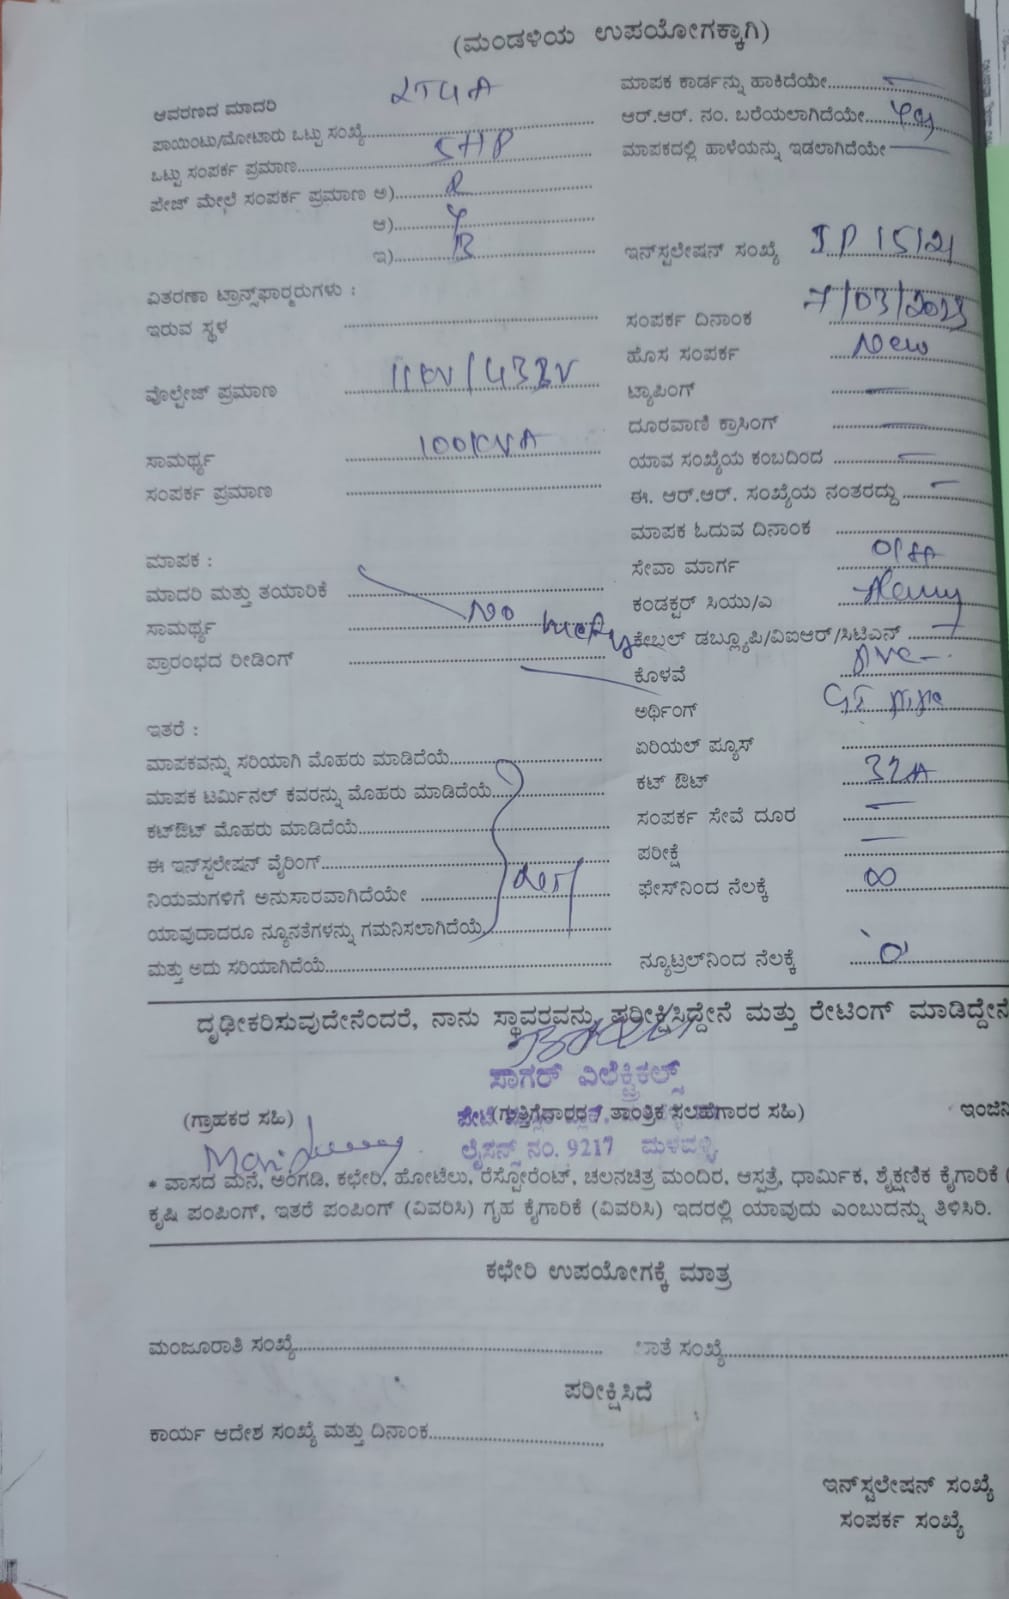 (ಮಂಡಳಿಯ ಉಪಯೋಗಕ್ಕಾಗಿ)
ಆವರಣದ ಮಾದರಿ
ಪಾಯಿಂಟು/ಮೋಟಾರು ಒಟ್ಟು ಸಂಖ್ಯೆ
ಒಟ್ಟು ಸಂಪರ್ಕ ಪ್ರಮಾಣ 5HP
ಪೇಜ್ ಮೇಲೆ ಸಂಪರ್ಕ ಪ್ರಮಾಣ ಅ) R
ಆ) Y
ಇ) B
ವಿತರಣಾ ಟ್ರಾನ್ಸ್‌ಫಾರ್ಮರುಗಳು :
ಇರುವ ಸ್ಥಳ
ವೊಲ್ಟೇಜ್ ಪ್ರಮಾಣ
ಸಾಮರ್ಥ್ಯ 100KVA
ಸಂಪರ್ಕ ಪ್ರಮಾಣ
ಮಾಪಕ :
ಮಾದರಿ ಮತ್ತು ತಯಾರಿಕೆ
ಸಾಮರ್ಥ್ಯ No
ಪ್ರಾರಂಭದ ರೀಡಿಂಗ್
ಇತರೆ :
ಮಾಪಕವನ್ನು ಸರಿಯಾಗಿ ಮೊಹರು ಮಾಡಿದೆಯೆ
ಮಾಪಕ ಟರ್ಮಿನಲ್ ಕವರನ್ನು ಮೊಹರು ಮಾಡಿದೆಯೆ
ಕಟ್‌ಔಟ್ ಮೊಹರು ಮಾಡಿದೆಯೆ
ಈ ಇನ್‌ಸ್ಟಲೇಷನ್ ವೈರಿಂಗ್
ನಿಯಮಗಳಿಗೆ ಅನುಸಾರವಾಗಿದೆಯೇ
ಯಾವುದಾದರೂ ನ್ಯೂನತೆಗಳನ್ನು ಗಮನಿಸಲಾಗಿದೆಯೆ
ಮತ್ತು ಅದು ಸರಿಯಾಗಿದೆಯೆ
ಮಾಪಕ ಕಾರ್ಡನ್ನು ಹಾಕಿದೆಯೇ
ಆರ್.ಆರ್. ನಂ. ಬರೆಯಲಾಗಿದೆಯೇ Yes
ಮಾಪಕದಲ್ಲಿ ಹಾಳೆಯನ್ನು ಇಡಲಾಗಿದೆಯೇ
ಇನ್‌ಸ್ಟಲೇಷನ್ ಸಂಖ್ಯೆ IP 15121
ಸಂಪರ್ಕ ದಿನಾಂಕ 7/03/2023
ಹೊಸ ಸಂಪರ್ಕ New
ಟ್ಯಾಪಿಂಗ್
ದೂರವಾಣಿ ಕ್ರಾಸಿಂಗ್
ಯಾವ ಸಂಖ್ಯೆಯ ಕಂಬದಿಂದ
ಈ. ಆರ್.ಆರ್. ಸಂಖ್ಯೆಯ ನಂತರದ್ದು
ಮಾಪಕ ಓದುವ ದಿನಾಂಕ
ಸೇವಾ ಮಾರ್ಗ
ಕಂಡಕ್ಟರ್ ಸಿಯು/ಎ
ಕೇಬಲ್ ಡಬ್ಲ್ಯೂಪಿ/ವಿಐಆರ್/ಸಿಟಿಎಸ್
ಕೊಳವೆ PVC
ಅರ್ಥಿಂಗ್ GI Pipe
ಏರಿಯಲ್ ಫ್ಯೂಸ್
ಕಟ್ ಔಟ್ 32A
ಸಂಪರ್ಕ ಸೇವೆ ದೂರ
ಪರೀಕ್ಷೆ
ಫೇಸ್‌ನಿಂದ ನೆಲಕ್ಕೆ ∞
ನ್ಯೂಟ್ರಲ್‌ನಿಂದ ನೆಲಕ್ಕೆ 'o'
ದೃಢೀಕರಿಸುವುದೇನೆಂದರೆ, ನಾನು ಸ್ಥಾವರವನ್ನು ಪರೀಕ್ಷಿಸಿದ್ದೇನೆ ಮತ್ತು ರೇಟಿಂಗ್ ಮಾಡಿದ್ದೇನೆ
ಸಾಗರ್ ಎಲೆಕ್ಟ್ರಿಕಲ್ಸ್
(ಗ್ರಾಹಕರ ಸಹಿ) (ಗುತ್ತಿಗೆದಾರರ ತಾಂತ್ರಿಕ ಸಲಹೆಗಾರರ ಸಹಿ) ಇಂಜಿನಿ
ಲೈಸನ್ಸ್ ನಂ. 9217 ಮಳವಳ್ಳಿ
* ವಾಸದ ಮನೆ, ಅಂಗಡಿ, ಕಛೇರಿ, ಹೋಟೆಲು, ರೆಸ್ಟೋರೆಂಟ್, ಚಲನಚಿತ್ರ ಮಂದಿರ, ಆಸ್ಪತ್ರೆ, ಧಾರ್ಮಿಕ, ಶೈಕ್ಷಣಿಕ ಕೈಗಾರಿಕೆ (
ಕೃಷಿ ಪಂಪಿಂಗ್, ಇತರೆ ಪಂಪಿಂಗ್ (ವಿವರಿಸಿ) ಗೃಹ ಕೈಗಾರಿಕೆ (ವಿವರಿಸಿ) ಇದರಲ್ಲಿ ಯಾವುದು ಎಂಬುದನ್ನು ತಿಳಿಸಿರಿ.
ಕಛೇರಿ ಉಪಯೋಗಕ್ಕೆ ಮಾತ್ರ
ಮಂಜೂರಾತಿ ಸಂಖ್ಯೆ ಖಾತೆ ಸಂಖ್ಯೆ
ಪರೀಕ್ಷಿಸಿದೆ
ಕಾರ್ಯ ಆದೇಶ ಸಂಖ್ಯೆ ಮತ್ತು ದಿನಾಂಕ
ಇನ್‌ಸ್ಟಲೇಷನ್ ಸಂಖ್ಯೆ
ಸಂಪರ್ಕ ಸಂಖ್ಯೆ